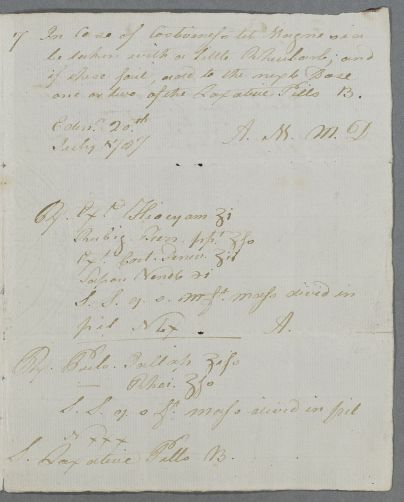 7 In Case of Costiveness let Magnesia
be taken with a little Rhubarb; and
if these fail, add to the next Dose
one or two of the Laxative Pills B.
Edinr. 20th
July 1787
A. M. M.D
Rx. Ext. Hioscyam ʒi
Rubig. Ferr. ppt ʒſs
Ext. Cort. Peruv. ʒii
Sapon
S. S. q. s. ft. maſs divid in
pil
A.
Rx. Pulv. Jallap ʒiſs
— Rhei. ʒſs
S. S. q. s ft. maſs divid in pil
N XXX
S. Laxative Pills B.